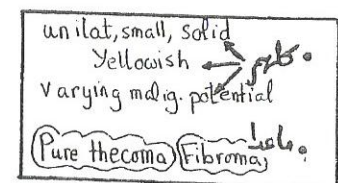 unilat, small, solid
Yellowish
• كلهم
varying malig. potential
• ماعدا
Pure thecoma Fibroma,